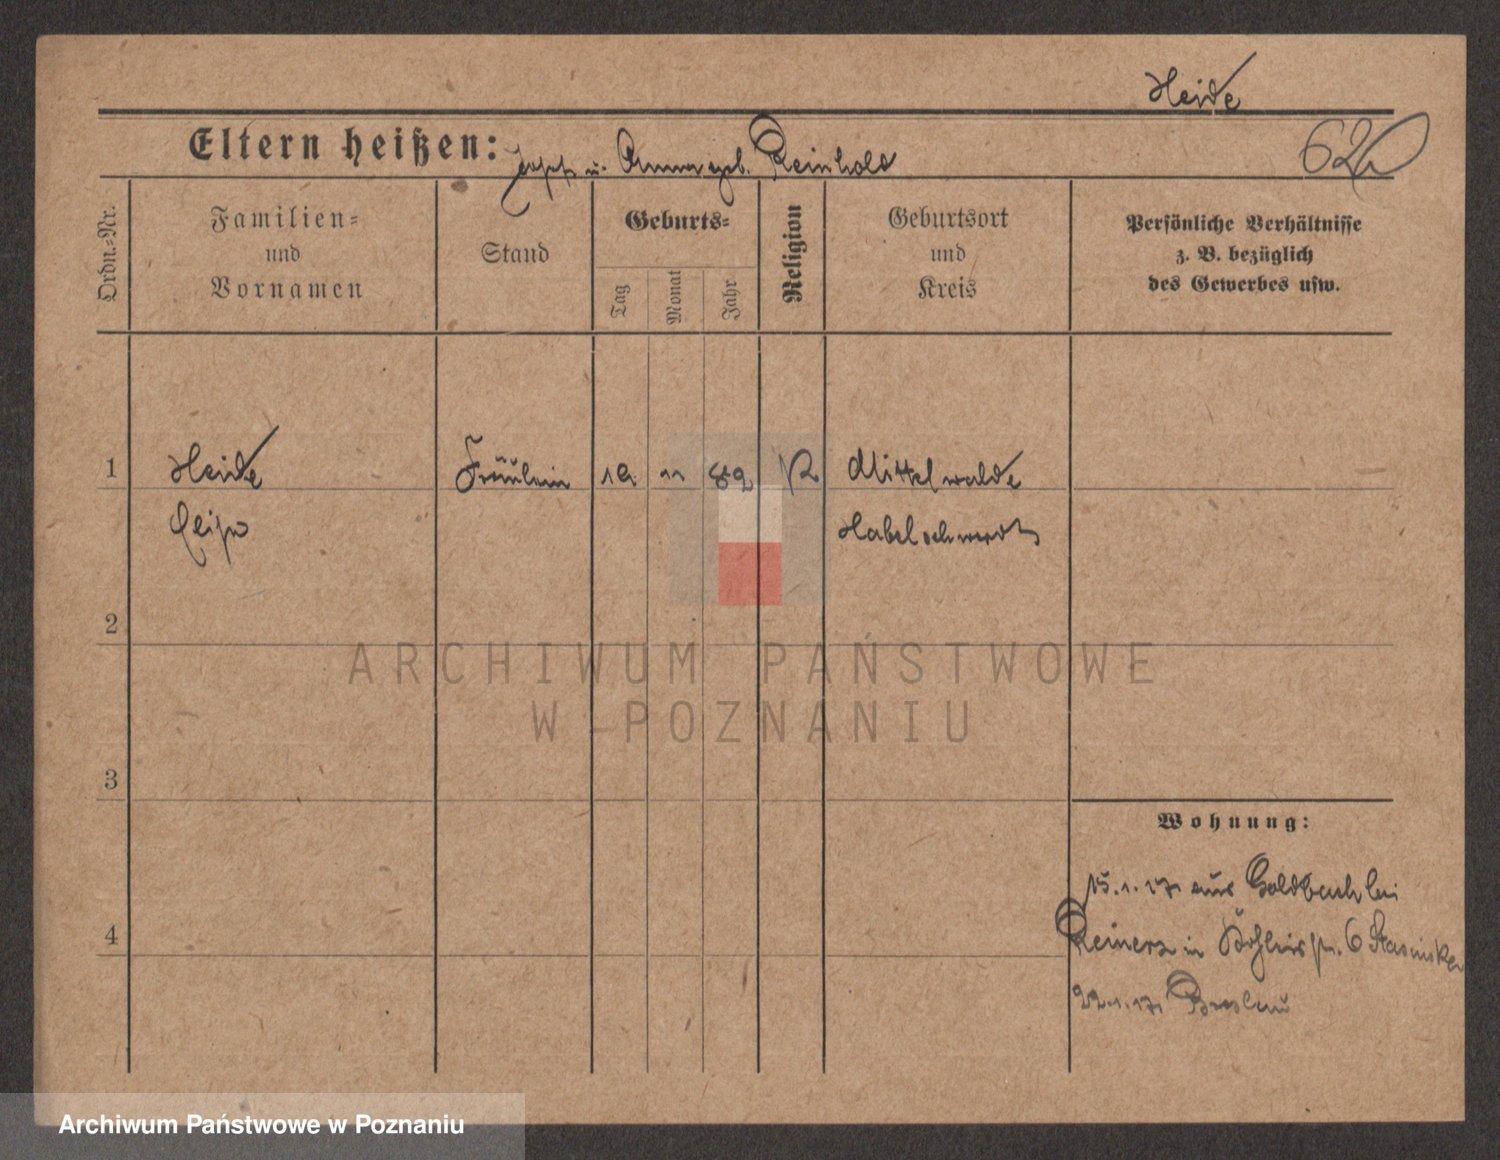 Heide
Eltern heißen: Josef u. Anna geb. Reinhold
Ordn.=Nr.
Familien=
und
Vornamen
Stand
Geburts=
Tag
Monat
Jahr
Religion
Geburtsort
und
Kreis
Persönliche Verhältnisse
z. B. bezüglich
des Gewerbes usw.
1 Heide Fräulein 19 11 R Mittelwalde
Habelschwerdt
2
3
Wohnung:
15.1.17 aus Goldbach bei
4 Reinerz in 6
22.1.17 Breslau
ARCHIWUM PAŃSTWOWE
W POZNANIU
Archiwum Państwowe w Poznaniu